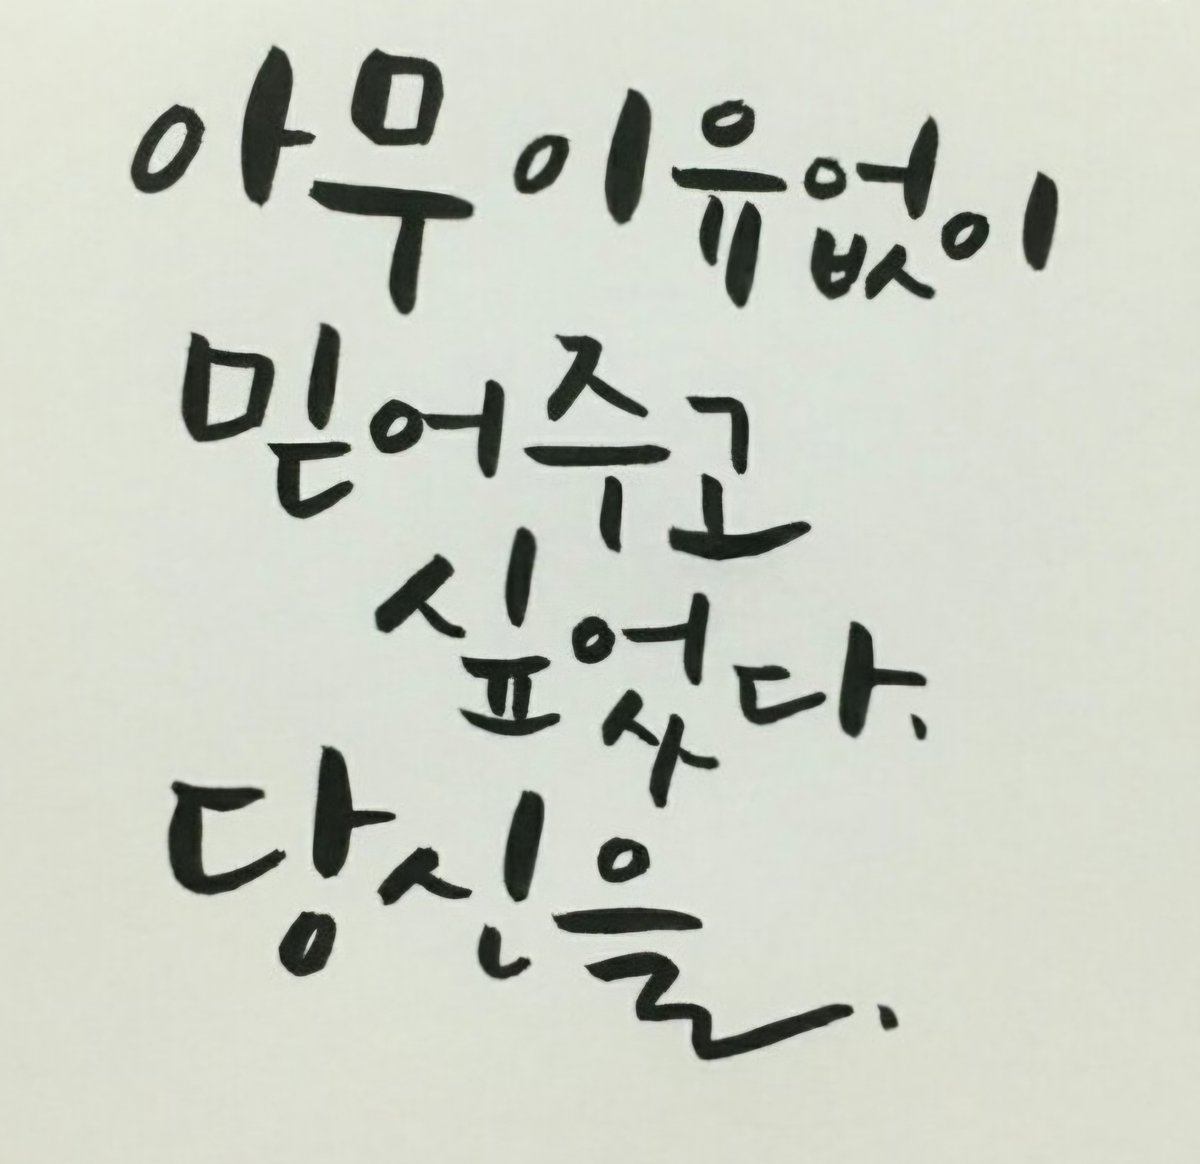 아무 이유없이
믿어주고
싶었다.
당신을.